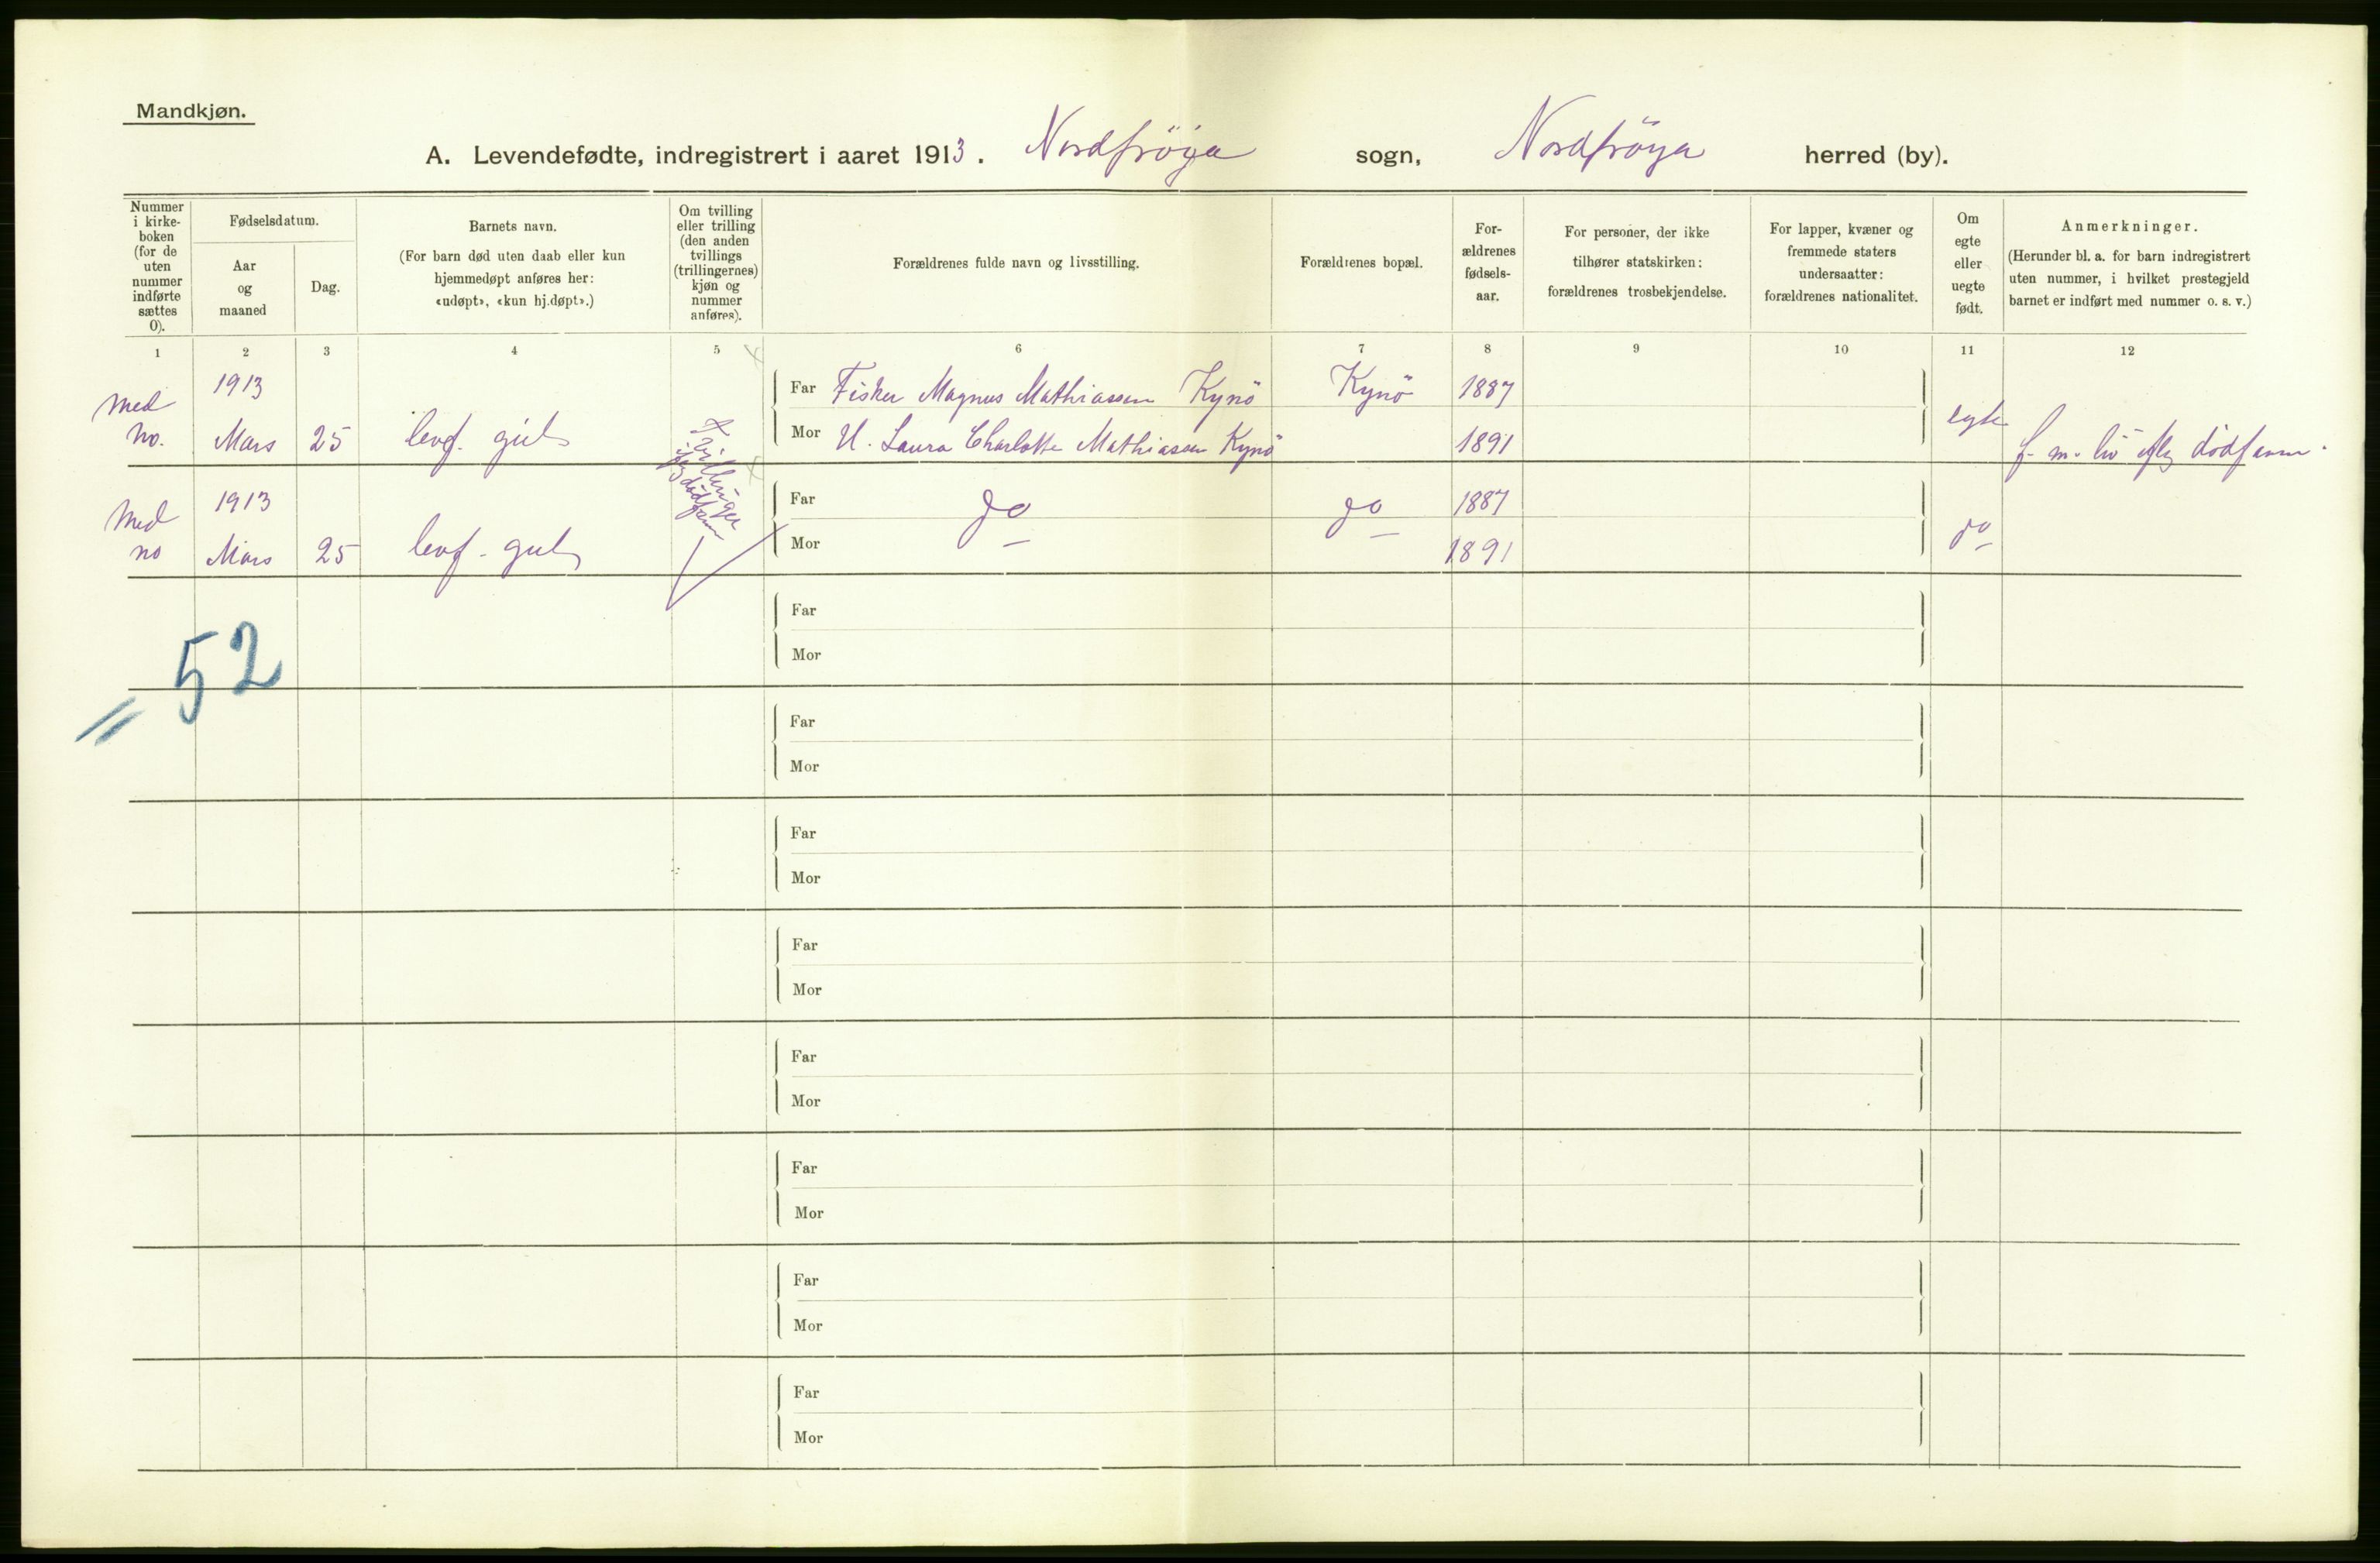 Mandkjøn.
A. Levendefødte, indregistrert i aaret 1913. Nordfröya sogn, Nordfröya herred (by).
Nummer i kirke-boken (for de uten nummer indførte sættes 0).
Fødselsdatum.
Aar og maaned
Dag.
Barnets navn.
(For barn død uten daab eller kun hjemmedøpt anføres her: «udøpt», «kun hj.døpt».)
Om tvilling eller trilling (den anden tvillings (trillingernes) kjøn og nummer anføres).
Forældrenes fulde navn og livsstilling.
Forældrenes bopæl.
For-ældrenes fødsels-aar.
For personer, der ikke tilhører statskirken: forældrenes trosbekjendelse.
For lapper, kvæner og fremmede staters undersaatter: forældrenes nationalitet.
Om egte eller uegte født.
Anmerkninger.
(Herunder bl. a. for barn indregistrert uten nummer, i hvilket prestegjeld barnet er indført med nummer o. s. v.)
1 2 3 4 5 6 7 8 9 10 11 12
1913 Far Fisker Magnus Mathiassen Kynö Kynö 1887
Med no. Mars 25 levf. gut Tvillinger Mor H. Laura Charlotte Mathiassen Kynö 1891 egte f. m. liv dödf
1913 Far do do 1887
Med no Mars 25 levf. gut Mor 1891 do
= 52
Far
Mor
Far
Mor
Far
Mor
Far
Mor
Far
Mor
Far
Mor
Far
Mor
Far
Mor